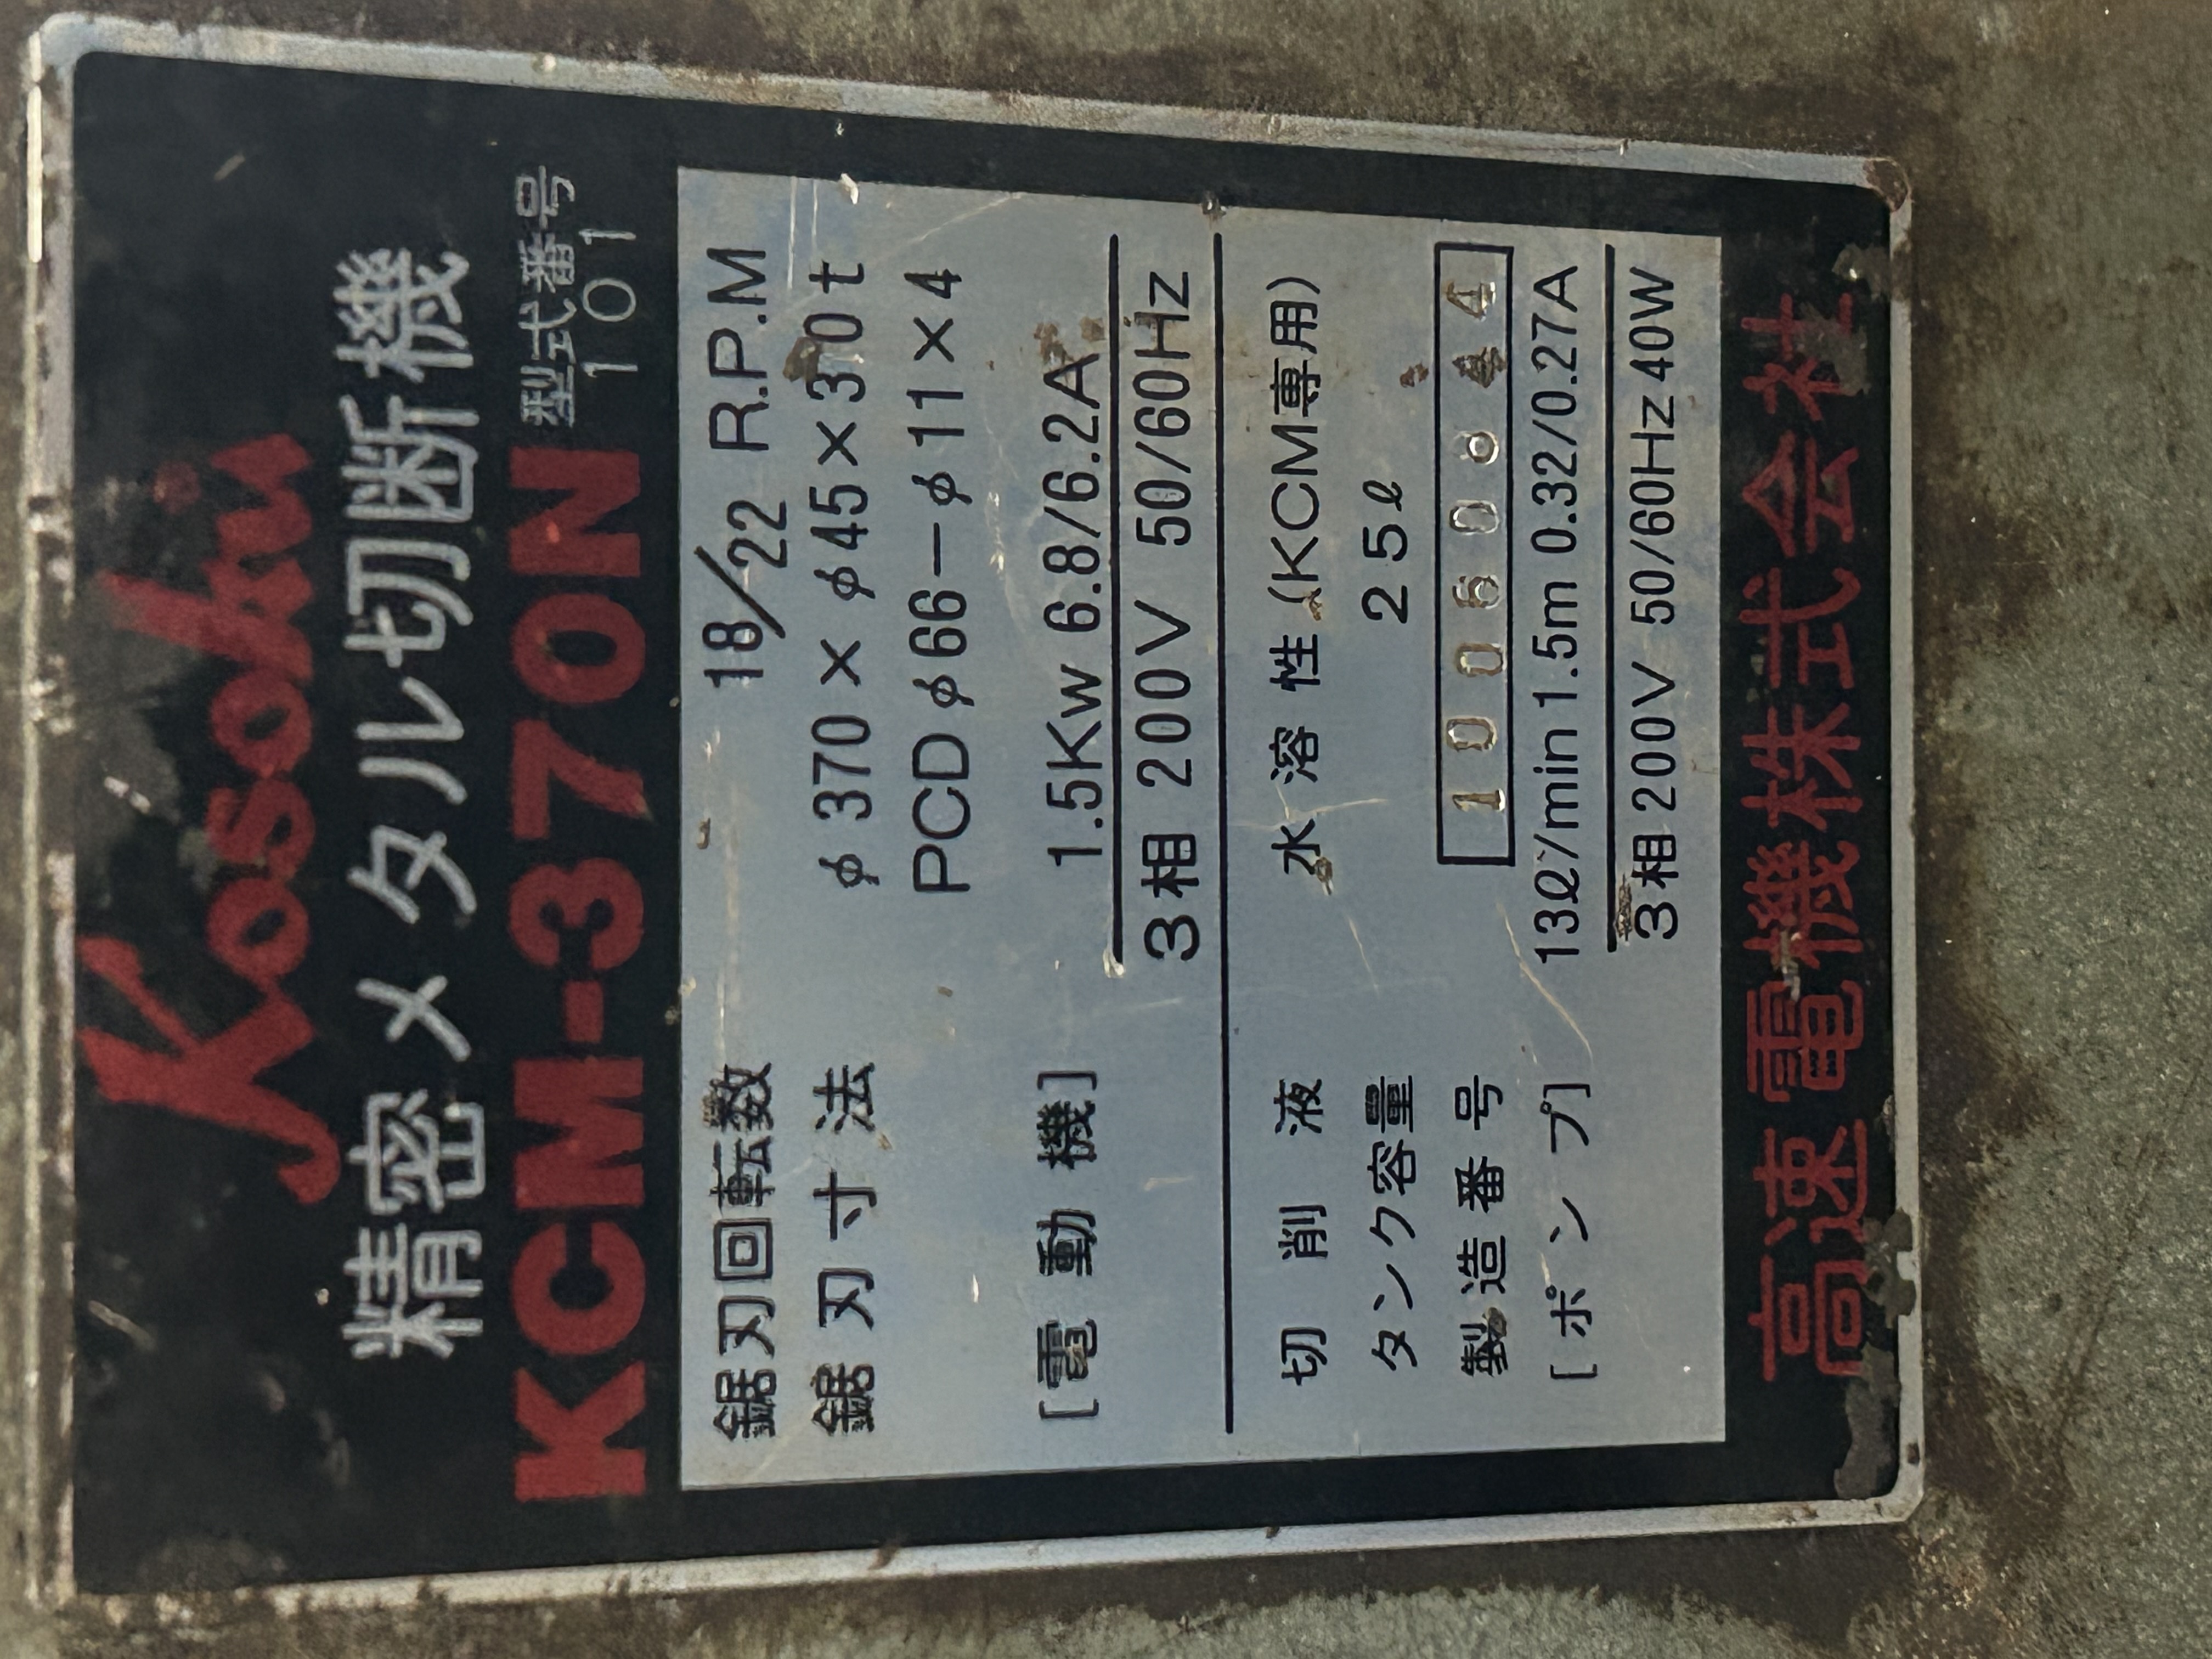 Kosoku
精密メタル切断機
KCM-370N 型式番号 101
鋸刃回転数 18/22 R.P.M
鋸刃寸法 φ370×φ45×3.0t
PCDφ66-φ11×4
[電動機] 1.5Kw 6.8/6.2A
3相 200V 50/60Hz
切削液 水溶性(KCM専用)
タンク容量 25ℓ
製造番号
[ポンプ] 13ℓ/min 1.5m 0.32/0.27A
3相 200V 50/60Hz 40W
高速電機株式会社